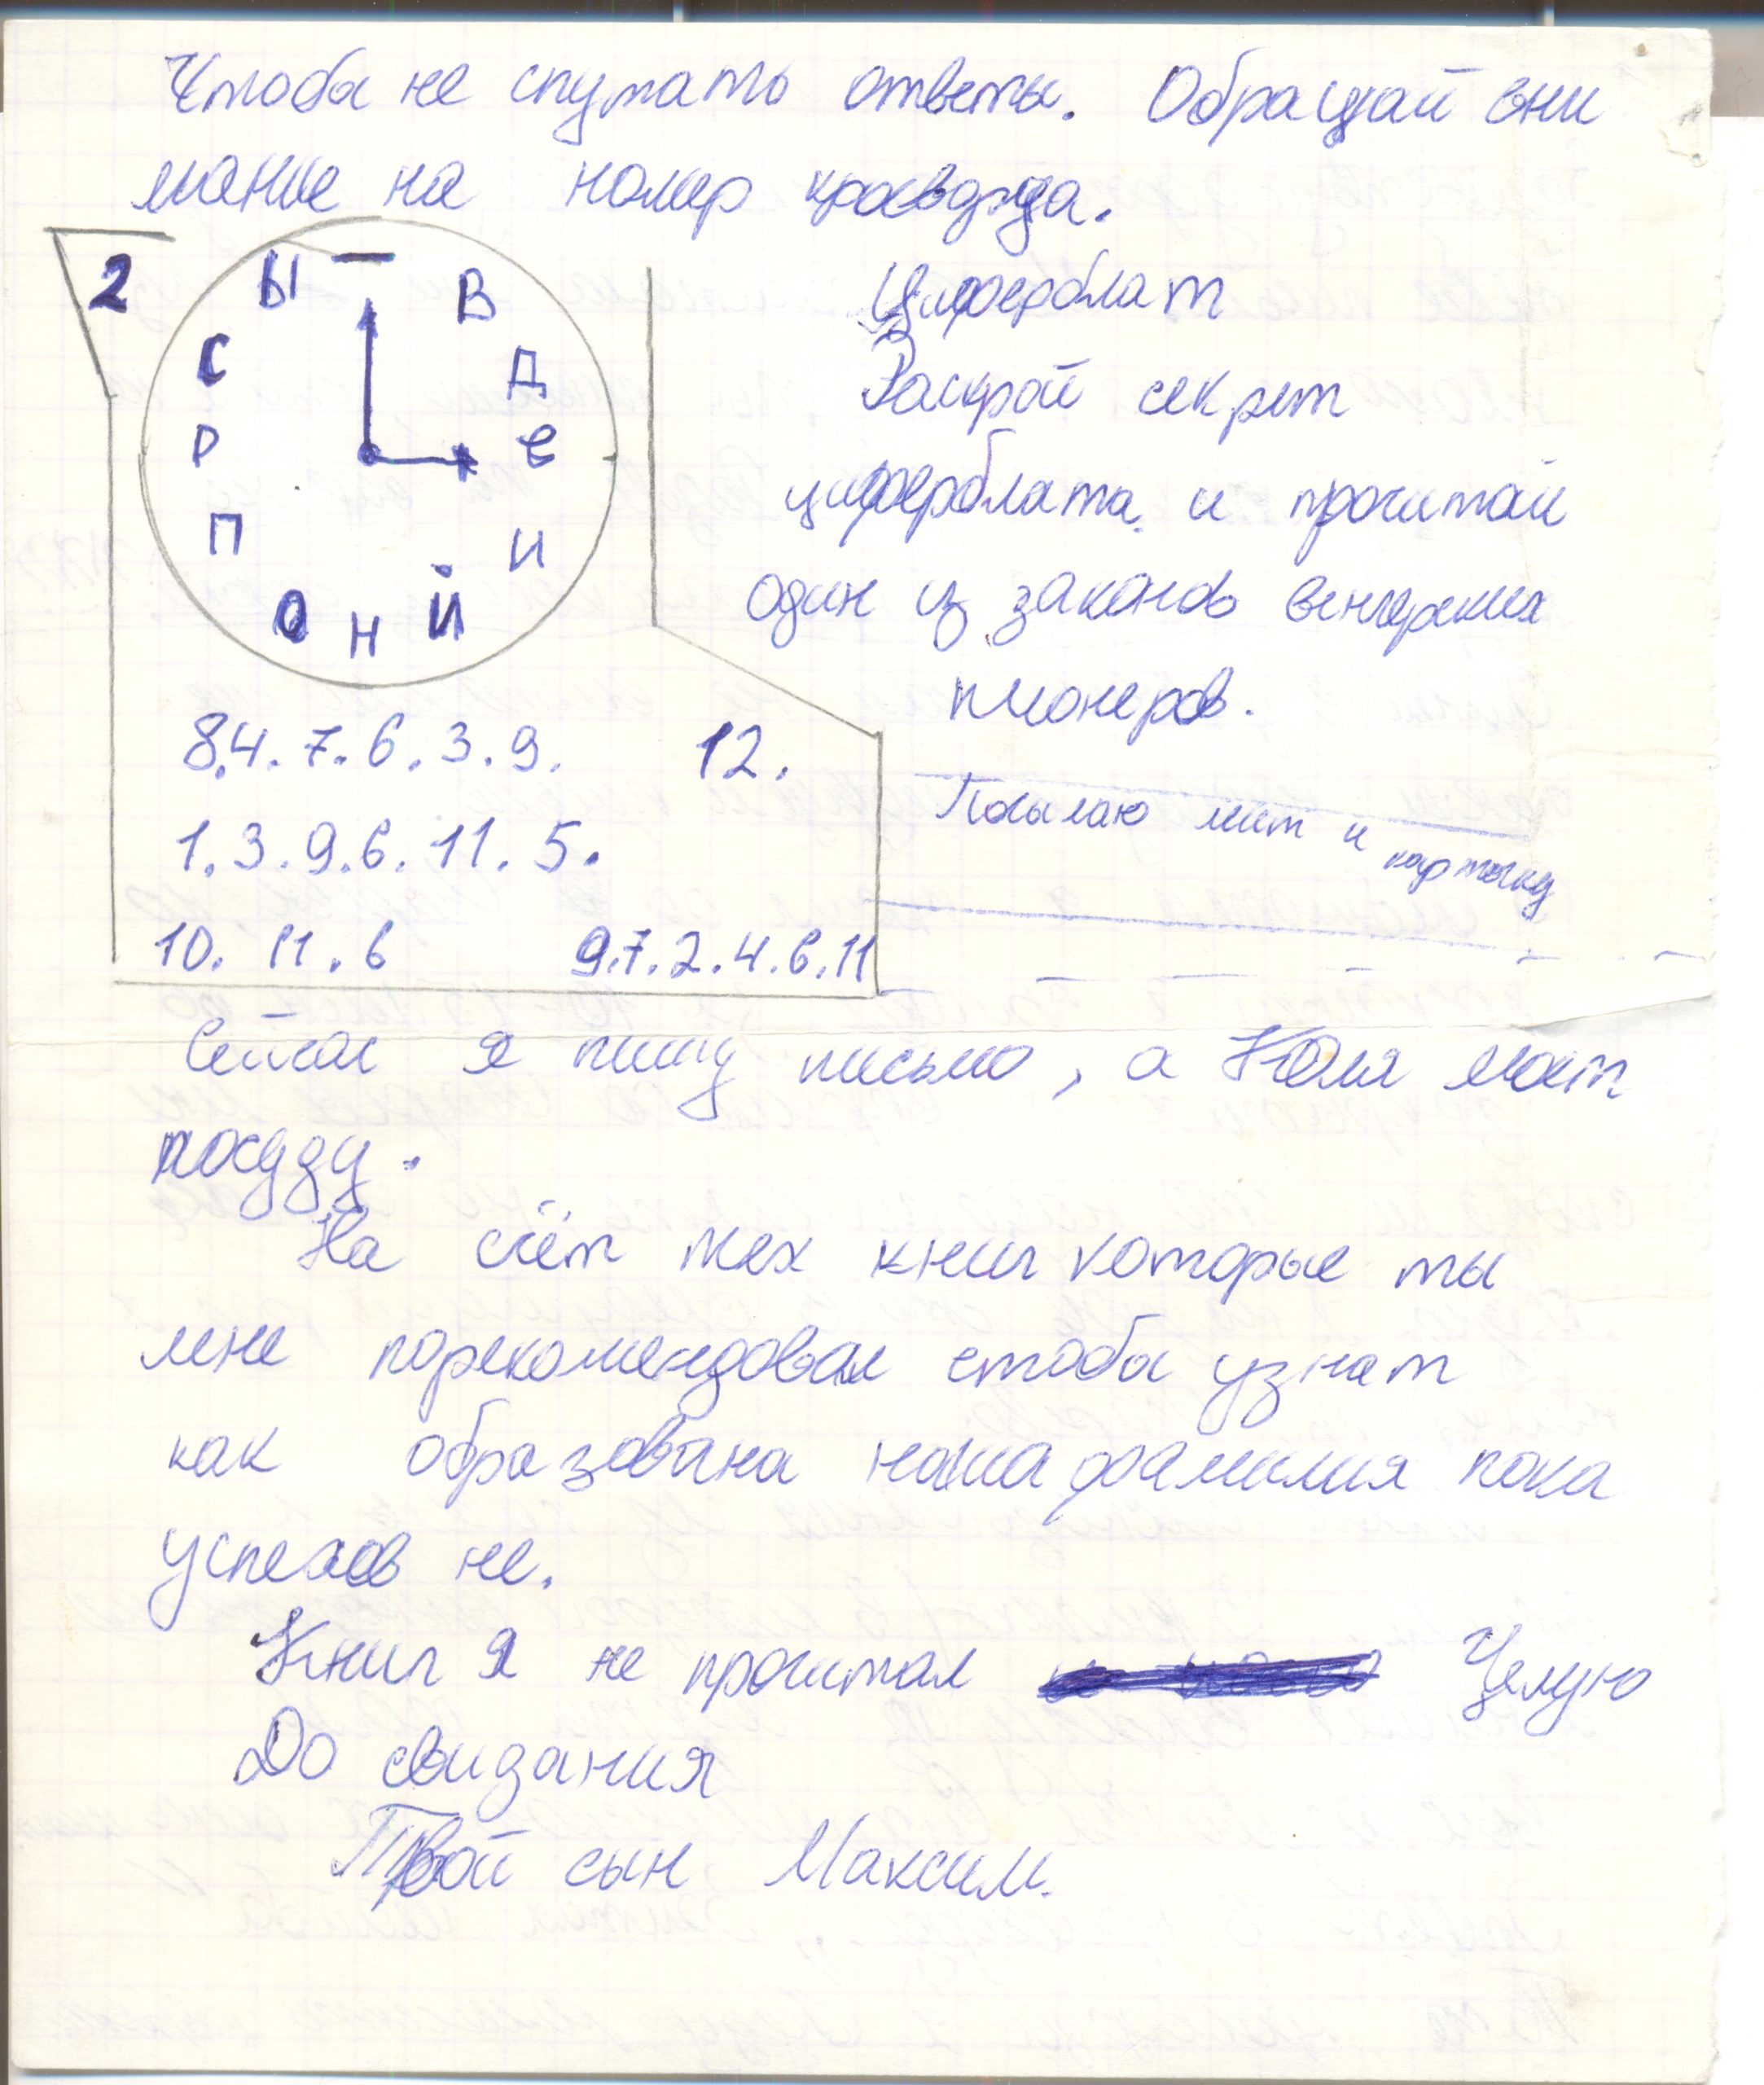 Чтобы не спутать ответы. Обращай вни
мание на номер кросворда.
2
Ы — В
С Д
Р Е
П И
О Н Й
Циферблат
Раскрой секрет
циферблата и прочитай
один из законов венгерских
пионеров.
8.4.7.6.3.9. 12.
1.3.9.6.11.5.
10. 11. 6 9.7.2.4.6.11
Посылаю лист и
карточку
Сейчас я пишу письмо, а Коля моет
посуду.
На счёт тех книг которые ты
мне порекомендовал чтобы узнат
как образована наша фамилия пока
успехов не.
Книг я не прочитал Целую
До свидания
Твой сын Максим.